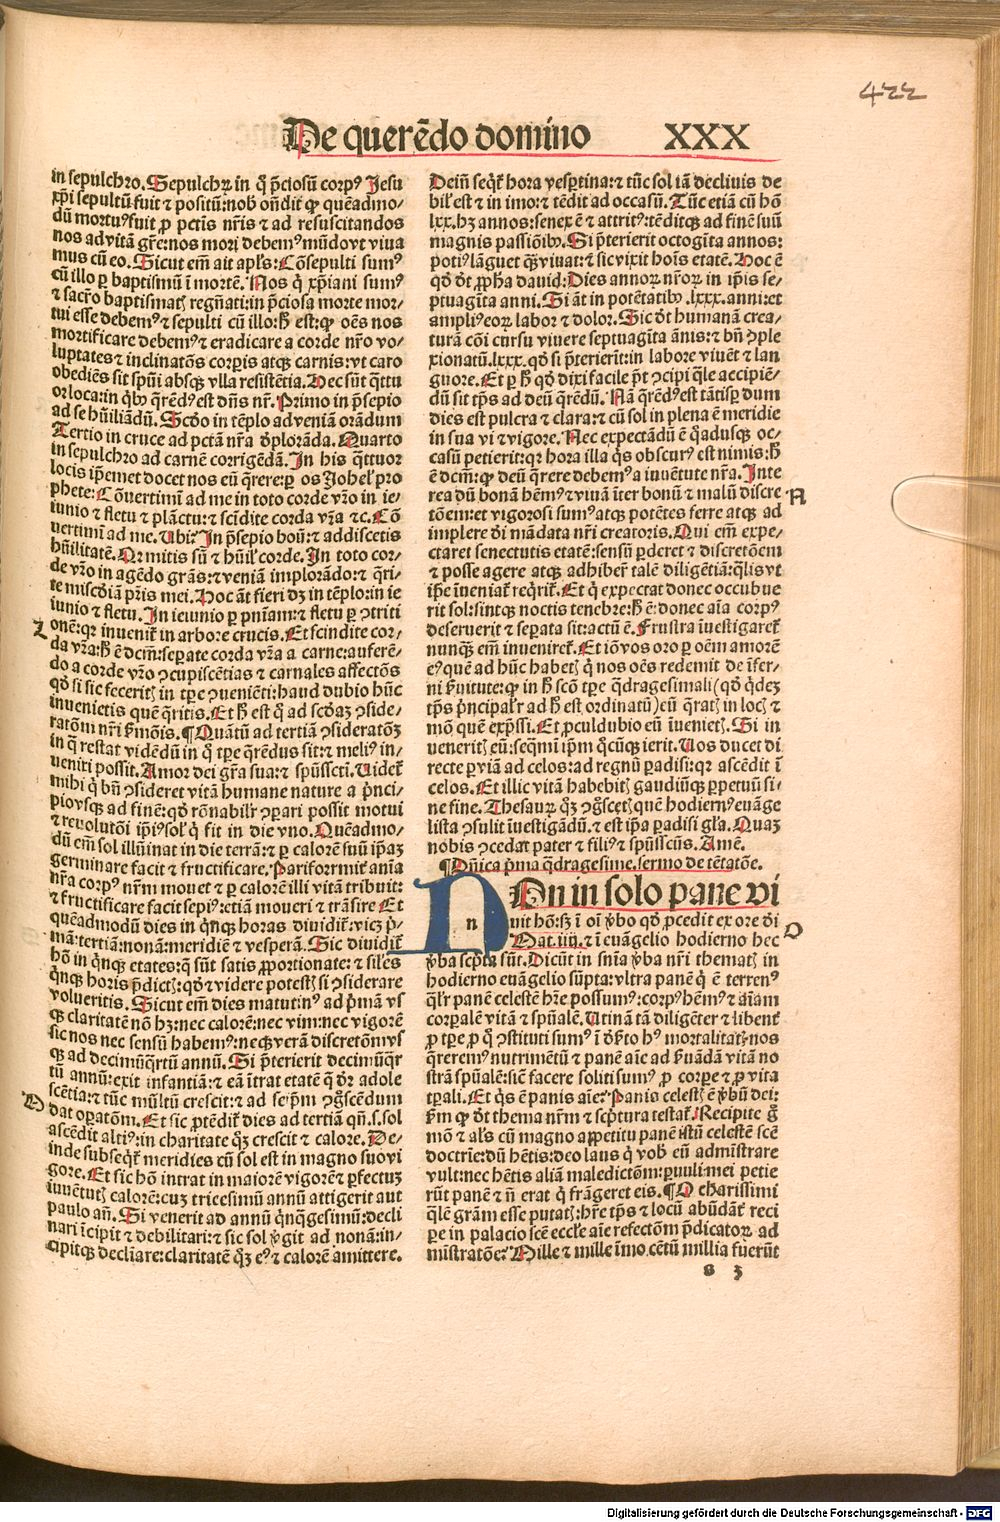 422
De querẽdo domino XXX
in sepulchro. Sepulchꝝ in q̃ p̃ciosũ corpꝰ Jesu
xp̃i sepultũ fuit ⁊ positũ: nob oñdit ꝙ quẽadmo/
dũ mortuꝰ fuit ꝓ pctis nr̃is ⁊ ad resuscitandos
nos ad vitã gr̃e: nos mori debemꝰ mũdo vt viua
mus cũ eo. Sicut em̃ ait apl̃s: Cõsepulti sumꝰ
cũ illo ꝑ baptismũ ĩ mortẽ. Nos q̃ xp̃iani sumꝰ
⁊ sacr̃o baptismatꝭ regñati: in p̃ciosa morte mor/
tui esse debemꝰ ⁊ sepulti cũ illo: h̃ est: ꝙ oẽs nos
mortificare debemꝰ ⁊ eradicare a corde nr̃o vo/
luptates ⁊ inclinatões corꝑis atqꝫ carnis: vt caro
obediẽs sit spũi absqꝫ vlla resistẽtia. Hec sũt q̃ttu
or loca: in q̃bꝰ q̃rẽdꝰ est dñs nr̃. Primo in p̃sepio
ad se hũiliãdũ. Scd̃o in tẽplo ad veniã orãdum
Tertio in cruce ad pctã nr̃a d̾plorãda. Quarto
in sepulchro ad carnẽ corrigẽdã. In his q̃ttuor
locis ip̃emet docet nos eũ q̃rere: ꝑ os Johel̾ pro
phete: Cõuertimĩ ad me in toto corde vr̃o in ie/
iunio ⁊ fletu ⁊ plãctu: ⁊ scĩdite corda vr̃a ⁊c. Cõ
uertimĩ ad me. Ubi? In p̃sepio boũ: ⁊ addiscetis
hũilitatẽ. Qꝛ mitis sũ ⁊ hũil̾ corde. In toto cor/
de vr̃o in agẽdo gr̃as: ⁊ veniã implorãdo: ⁊ q̃ri/
te miscd̃iã pr̃is mei. Hoc ãt fieri dꝫ in tẽplo: in ie
iunio ⁊ fletu. In ieiunio ꝑ pnĩam: ⁊ fletu ꝑ ↄtriti
onẽ: qꝛ inuenit̾ in arbore crucis. Et scindite cor/
da vr̃a: h̃ ẽ dcm̃: seꝑate corda vr̃a a carne: auferẽ/
do a corde vr̃o ↄcupiscẽtias ⁊ carnales affectõs
qd̃ si sic feceritꝭ in tꝑe ↄueniẽti: haud dubio hũc
inuenietis quẽ q̃ritis. Et h̃ est q̃ ad scd̃aꝫ ↄside/
ratõm nr̃i s̾mõis. ¶Quãtũ ad tertiã ↄsideratõꝫ
in q̃ restat vidẽdũ in q̃ tꝑe q̃rẽdus sit: ⁊ meliꝰ in/
ueniri possit. Amor dei gr̃a sua: ⁊ spũssctĩ. Videt̾
mihi q̃ bñ ↄsideret vitã humane nature a p̃nci/
pio vsqꝫ ad finẽ: qd̃ rõnabilr̃ ↄꝑari possit motui
⁊ reuolutõi ip̃iꝰ sol̾ q̃ fit in die vno. Quẽadmo/
dũ em̃ sol illuminat in die terrã: ⁊ ꝑ calorẽ suũ ip̃aꝫ
germinare facit ⁊ fructificare. Pariformit̾ aĩa
nr̃a corpꝰ nr̃m mouet ⁊ ꝑ calorẽ illi vitã tribuit:
⁊ fructificare facit sepiꝰ: etiã moueri ⁊ trãsire Et
quẽadmodũ dies in q̃nqꝫ horas diuidit̾: vicꝫ p̾/
mã: tertiã: nonã: meridiẽ ⁊ vesꝑã. Sic diuidit̾
hõ in q̃nqꝫ etates: q̃ sũt satis ꝓportionate: ⁊ sil̃es
q̃nqꝫ horis p̃dictꝭ: qd̃ ⁊ videre potestꝭ si ↄsiderare
volueritis. Sicut em̃ dies matutinꝰ ad p̾mã vs
qꝫ claritatẽ nõ hꝫ: nec calorẽ: nec vim: nec vigorẽ
sic nos nec sensũ habemꝰ: neqꝫ verã discretõm vs
qꝫ ad decimũq̃rtũ annũ. Si p̃terierit decimũq̃r
tũ annũ: exit infantiã: ⁊ eã ĩtrat etatẽ q̃ dr̃ adole
scẽtia: ⁊ tũc multũ crescit: ⁊ ad sep̃m ↄgñscẽdum
dat oꝑatõm. Et sic ꝓtẽdit̾ dies ad tertiã qñ. s. sol
ascẽdit altiꝰ: in charitate q̃ꝫ crescit ⁊ calore. De/
inde subseq̃t̾ meridies cũ sol est in magno suo vi
gore. Et sic hõ intrat in maiorẽ vigorẽ ⁊ ꝑfectuꝫ
iuuẽtutꝭ calorẽ: cuꝫ tricesimũ annũ attigerit aut
paulo añ. Si venerit ad annũ q̃nq̃gesimũ: decli
nari ĩcipit ⁊ debilitari: ⁊ sic sol v̾git ad nonã: in/
cipitqꝫ decliare: claritatẽ q̃ꝫ eꝰ ⁊ calorẽ amittere.
L
M
Deiñ seq̃t̾ hora vesꝑtina: ⁊ tũc sol iã decliuis de
bil̾ est ⁊ in imo: ⁊ tẽdit ad occasũ. Tũc etiã cũ hõ
lxx. hꝫ annos: senex ẽ ⁊ attritꝰ: tẽditqꝫ ad finẽ suũ
magnis passiõibꝰ. Si p̃terierit octogĩta annos:
potiꝰ lãguet q̃ꝫ viuat: ⁊ sic vixit hoĩs etatẽ. Hoc ẽ
qd̃ dt̃ ꝓpħa dauid: Dies annoꝝ nr̃oꝝ in ip̃is se/
ptuagĩta anni. Si ãt in potẽtatibꝰ .lxxx. anni: et
ampliꝰ eoꝝ labor ⁊ dolor. Sic dt̃ humanã crea/
turã cõi cursu viuere septuagĩta ãnis: ⁊ bñ ↄple
xionatũ .lxxx. qd̃ si p̃terierĩt: in labore viuẽt ⁊ lan
guore. Et ꝑ h̃ qd̃ dixi facile p̃t ↄcipi q̃le accipiẽ/
dũ sit tp̃s ad deũ q̃rẽdũ. Nã q̃rẽdꝰ est tãtisꝑ dum
dies est pulcra ⁊ clara: ⁊ cũ sol in plena ẽ meridie
in sua vi ⁊ vigore. Nec expectãdũ ẽ q̃adusqꝫ oc/
casũ petierit: qꝛ hora illa q̃s obscurꝰ est nimis: h̃
ẽ dcm̃: ꝙ deũ q̃rere debemꝰ a iuuẽtute nr̃a. Inte
rea dũ bonã hẽmꝰ ⁊ viuã ĩter bonũ ⁊ malũ discre
tõem: ⁊ vigorosi sumꝰ atqꝫ potẽtes ferre atqꝫ ad
implere di mãdata nr̃i creatoris. Qui em̃ expe/
ctaret senectutis etatẽ: sensũ ꝑderet ⁊ discretõem
⁊ posse agere atqꝫ adhiber̃ talẽ diligẽtiã: q̃lis vt
ip̃e ĩueniat̾ req̃rit̾. Et q̃ expectat donec occubue
rit sol: sintqꝫ noctis tenebre: h̃ ẽ: donec aĩa corpꝰ
deseruerit ⁊ seꝑata sit: actũ ẽ. Frustra ĩuestigaret̾
nunq̃ꝫ em̃ inueniret̾. Et iõ vos oro ꝑ oẽm amorẽ
eꝰ quẽ ad hũc habetꝭ q̃ nos oẽs redemit de ĩfer/
ni s̾uitute: ꝙ in h̃ scõ tꝑe q̃dragesimali (qd̃ q̃deꝫ
tp̃s p̾ncipalr̃ ad h̃ est ordinatũ) eũ q̃ratꝭ in locꝭ ⁊
mõ quẽ exp̃ssi. Et ꝓculdubio eũ ĩuenietꝭ. Si in
ueneritꝭ eũ: seq̃mĩ ip̃m q̃cũqꝫ ierit. Uos ducet di
recte ꝑ viã ad celos: ad regnũ ꝑadisi: qꝛ ascẽdit ĩ
celos. Et illic vitã habebitꝭ gaudiũqꝫ ꝑpetuũ si/
ne fine. Thesauꝝ q̃ꝫ ↄgñscetꝭ quẽ hodiernꝰ euãge
lista ↄsulit ĩuestigãdũ. ⁊ est ip̃a ꝑadisi gl̃a. Quaꝫ
nobis ↄcedat pater ⁊ filiꝰ ⁊ spũsscũs. Amẽ.
¶Dñica p̾ma q̃dragesime. sermo de tẽtatõe.
NOn in solo pane vi
n
uit hõ: sꝫ ĩ oĩ v̾bo qd̃ ꝓcedit ex ore di
Mat. iiij. ⁊ ĩ euãgelio hodierno hec
v̾ba scp̃ta sũt. Dicũt in snĩa v̾ba nr̃i thematꝭ in
hodierno euãgelio sũpta: vltra panẽ q̃ ẽ terrenꝰ
q̃lr̃ panẽ celestẽ hr̃e possumꝰ: corpꝰ hẽmꝰ ⁊ aĩam
corꝑalẽ vitã ⁊ spũalẽ. Utinã tã diligẽter ⁊ libent̾
ꝓ tꝑe ꝓ q̃ ↄstituti sumꝰ ĩ d̾b̾to hꝰ mortalitatꝭ nos
q̃reremꝰ nutrimẽtũ ⁊ panẽ aĩe ad s̾uãdã vitã no
strã spũalẽ: siẽ facere soliti sumꝰ ꝓ corꝑe ⁊ ꝓ vita
tꝑali. Et q̃s ẽ panis aĩe? Panis celestꝭ ẽ v̾bũ dei:
s̾m ꝙ dt̃ thema nr̃m ⁊ scp̾tura testat̾. Recipite g̾
mõ ⁊ al̃s cũ magno appetitu panẽ istũ celestẽ scẽ
doctrĩe: dũ hẽtis: deo laus q̃ vob̾ eũ admĩstrare
vult: nec hẽtis aliã maledictõm: ꝑuuli mei petie
rũt panẽ ⁊ ñ erat q̃ frãgeret eis. ¶O charissimi
q̃lẽ gr̃am esse putatꝭ: hr̃e tp̃s ⁊ locũ abũdãt̾ reci
ꝑe in palacio scẽ eccl̃e aĩe refectõm p̾dicatoꝝ ad
mĩstratõe? Mille ⁊ mille ĩmo cẽtũ millia fuerũt
N
O
s 3
Digitalisierung gefördert durch die Deutsche Forschungsgemeinschaft - DFG